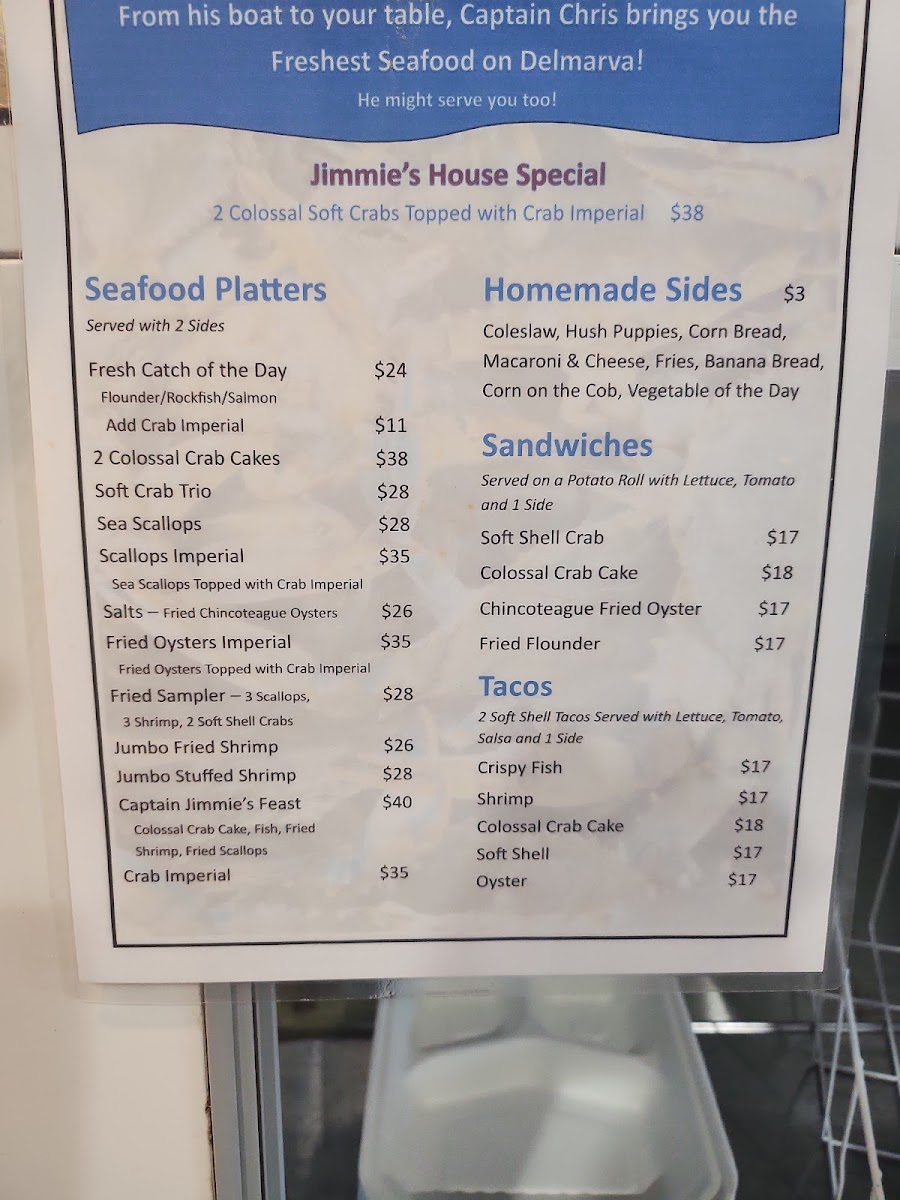 From his boat to your table, Captain Chris brings you the
Freshest Seafood on Delmarva!
He might serve you too!
Jimmie's House Special
2 Colossal Soft Crabs Topped with Crab Imperial $38
Seafood Platters
Served with 2 Sides
Fresh Catch of the Day $24
Flounder/Rockfish/Salmon
Add Crab Imperial $11
2 Colossal Crab Cakes $38
Soft Crab Trio $28
Sea Scallops $28
Scallops Imperial $35
Sea Scallops Topped with Crab Imperial
Salts – Fried Chincoteague Oysters $26
Fried Oysters Imperial $35
Fried Oysters Topped with Crab Imperial
Fried Sampler – 3 Scallops, $28
3 Shrimp, 2 Soft Shell Crabs
Jumbo Fried Shrimp $26
Jumbo Stuffed Shrimp $28
Captain Jimmie's Feast $40
Colossal Crab Cake, Fish, Fried
Shrimp, Fried Scallops
Crab Imperial $35
Homemade Sides $3
Coleslaw, Hush Puppies, Corn Bread,
Macaroni & Cheese, Fries, Banana Bread,
Corn on the Cob, Vegetable of the Day
Sandwiches
Served on a Potato Roll with Lettuce, Tomato
and 1 Side
Soft Shell Crab $17
Colossal Crab Cake $18
Chincoteague Fried Oyster $17
Fried Flounder $17
Tacos
2 Soft Shell Tacos Served with Lettuce, Tomato,
Salsa and 1 Side
Crispy Fish $17
Shrimp $17
Colossal Crab Cake $18
Soft Shell $17
Oyster $17